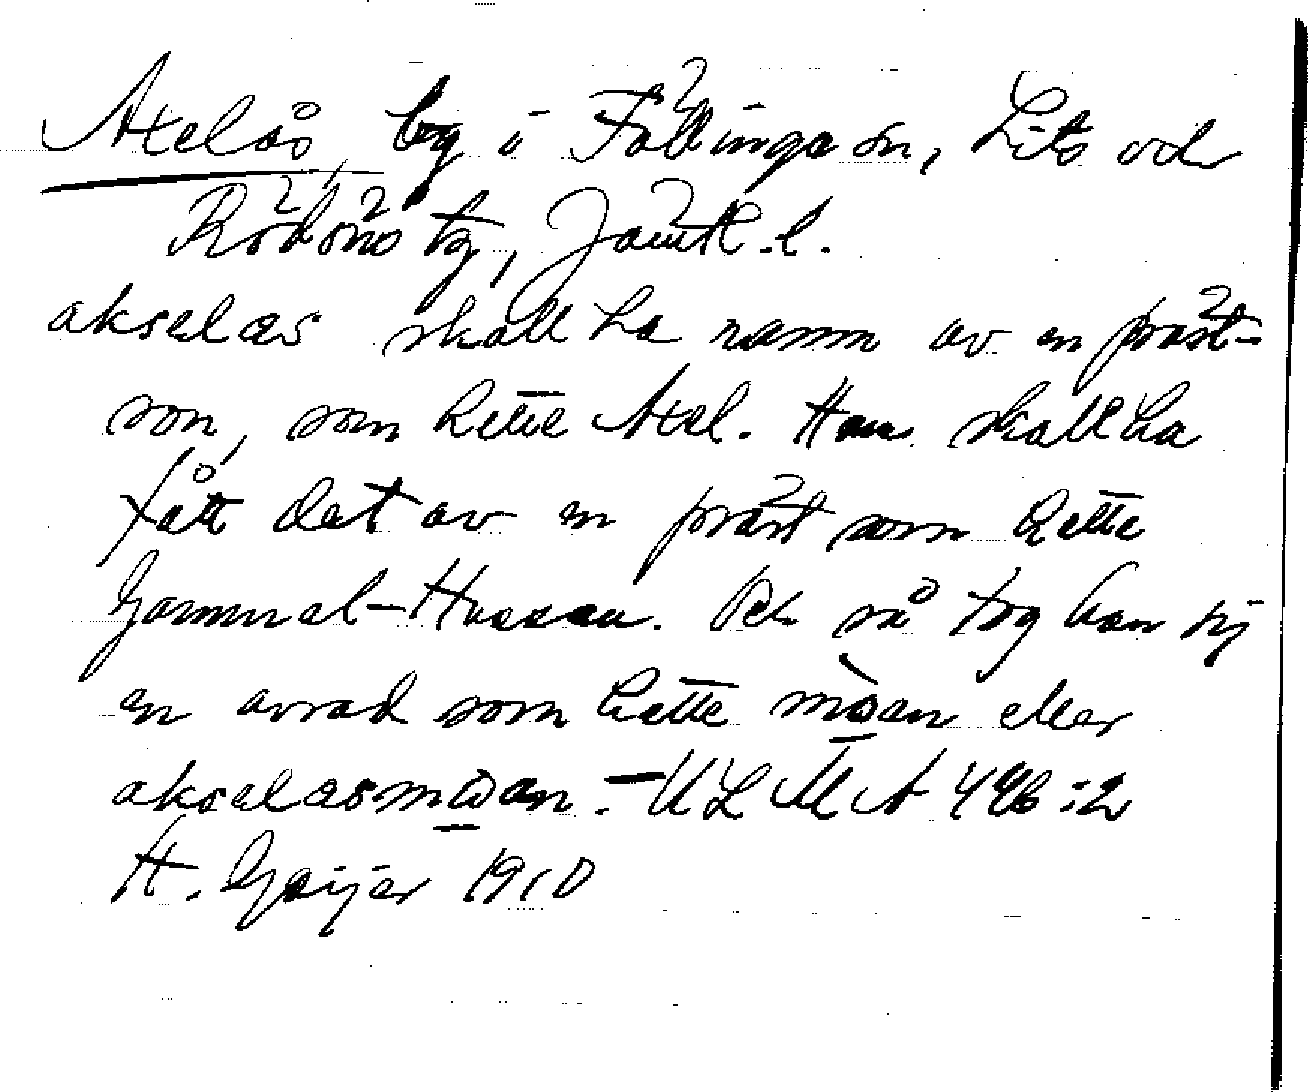 Axelås, by i Föllinge sn, Lits och
Rödöns tg, Jämtl. l.
akselas skall ha namn av en präst-
son, som hette Axel. Han skall ha
fått det av en präst som hette
Gammel-Hassan. Och så tog han sij
en avrad som hette moan eller
akselasmoan. - ULMA 446:2
H. Geijer 1910